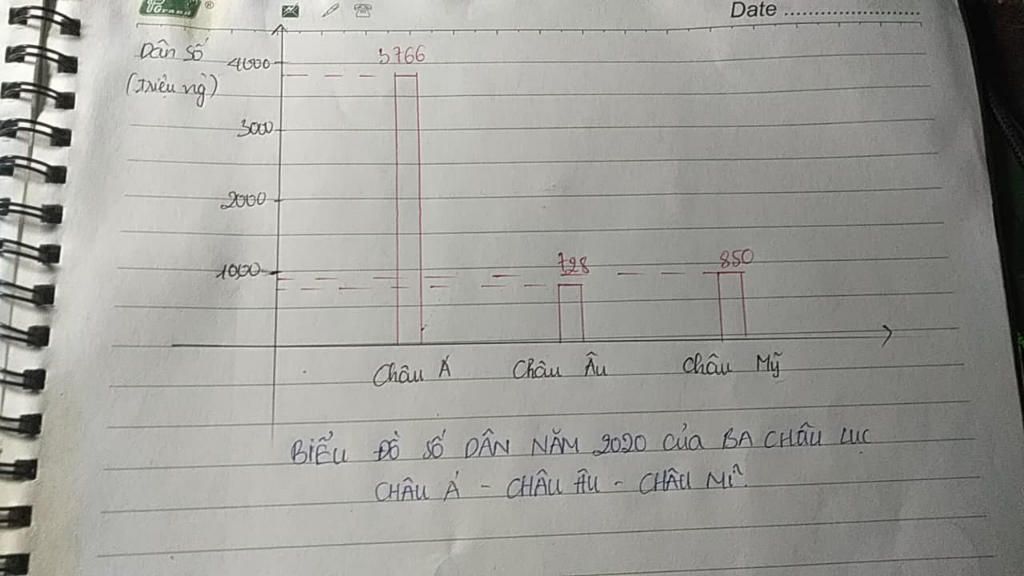 Date
Dân số
(triệu ng)
4000
3000
2000
1000
3766
728
850
Châu Á
Châu Âu
Châu Mỹ
BIỂU ĐỒ SỐ DÂN NĂM 2020 CỦA BA CHÂU LỤC
CHÂU Á - CHÂU ÂU - CHÂU MĨ.